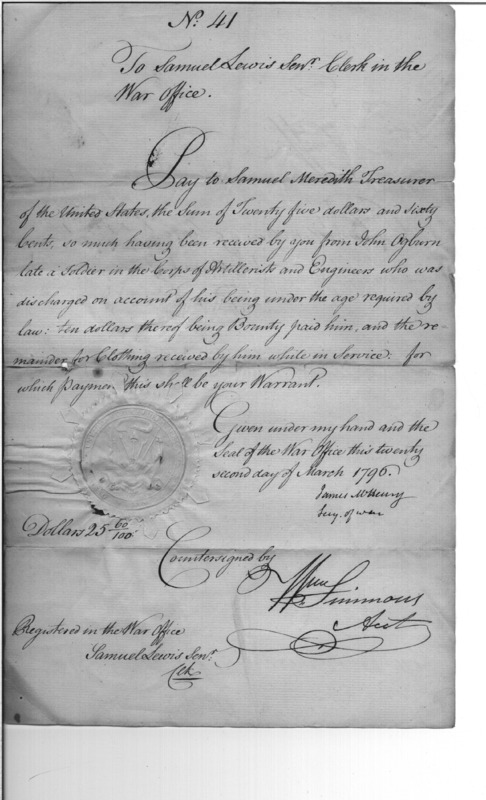 No. 41
To Samuel Lewis Senr. Clerk in the
War Office.
Pay to Samuel Meredith Treasurer
of the United States, the Sum of Twenty five dollars and sixty
Cents, so much having been received by you from John Ogburn
late a Soldier in the Corps of Artillerists and Engineers who was
discharged on account of his being under the age required by
law: ten dollars thereof being Bounty paid him, and the re-
mainder for Clothing received by him while in Service: for
which Paymen this shall be your Warrant.
Given under my hand and the
Seal of the War Office this twenty
second day of March 1796.
James McHenry
Secy. of war
Dollars 25 60/100.
Countersigned by
Wm Simmons
Acct
Registered in the War Office
Samuel Lewis Senr.
Clk